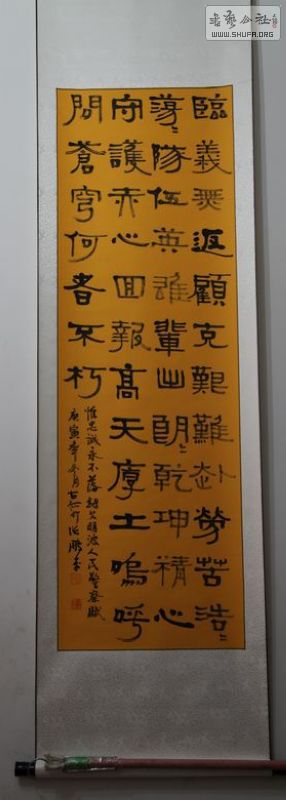 臨義無返顧克艱難赴勞苦浩〻
蕩〻隊伍英雄輩出朗〻乾坤精心
守護赤心回報高天厚土嗚呼
問蒼穹何者不朽
惟忠誠永不落 錄艾明波人民警察賦
庚寅年冬月
書藝公社
WWW.SHUFA.ORG